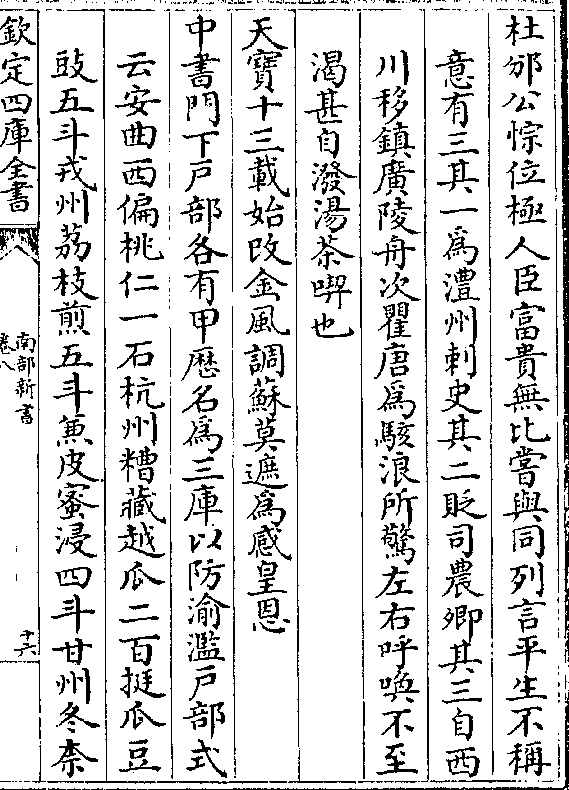 杜邠公悰位極人臣富貴無比嘗與同列言平生不稱
意有三其一為澧州刺史其二貶司農卿其三自西
川移鎮廣陵舟次瞿唐為駭浪所驚左右呼喚不至
渴甚自潑湯茶喫也
天寶十三載始改金風調蘇莫遮為感皇恩
中書門下戸部各有甲歴名為三庫以防渝濫戸部式
云安曲西偏桃仁一石杭州糟藏越瓜二百挺瓜豆
豉五斗戎州荔枝煎五斗兼皮蜜浸四斗甘州冬柰
欽定四庫全書
南部新書
卷八
十六